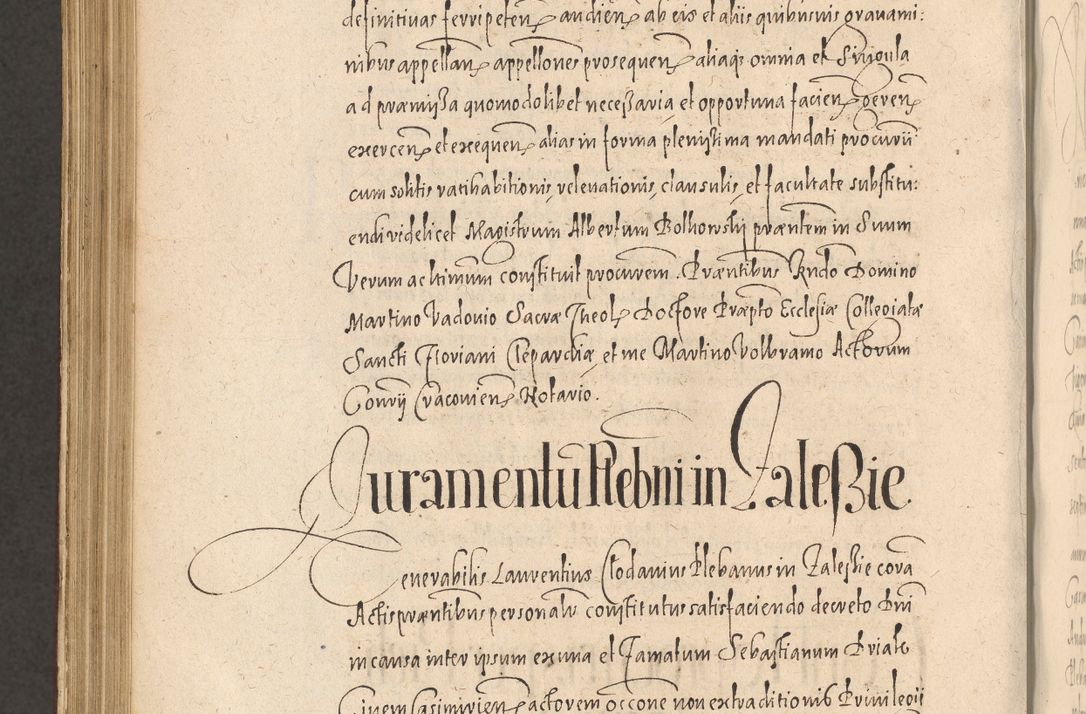 definitivas ferri peten? audien? ab eis et aliis quibusvis gravami:
nibus appellan? appellones prosequen? aliaq; omnia et Singula
ad præmissa quomodolibet necessaria et opportuna facien? geren?
exercen? et exequen? alias in forma plenissima mandati procurii
cum solitis ratihabitionis, relevationis, clausulis, et facultate substitu:
endi videlicet Magistrum Albertum Bolhowskij præntem in Suum
Verum ac ltimum constituit procurem. Præntibus Rndo Domino
Martino Vadovio Sacræ Theol? Doctore Præpto Ecclesiæ Collegiatæ
Sancti Floriani Clepardiæ, et me Martino Volbramo Actorum
Convrii Cracovien? Notario.
Juramentū Plebni in Zaleßie.
Venerabilis Laurentius Clodavius Plebanus in Zalessie corā
Actis præntibus personalr constitutus satisfaciendo decreto Dni
in causa inter ipsum ex una et Famatum Sebastianum Briale
Civem Casimirien? actorem occone non extraditionis Privilegii